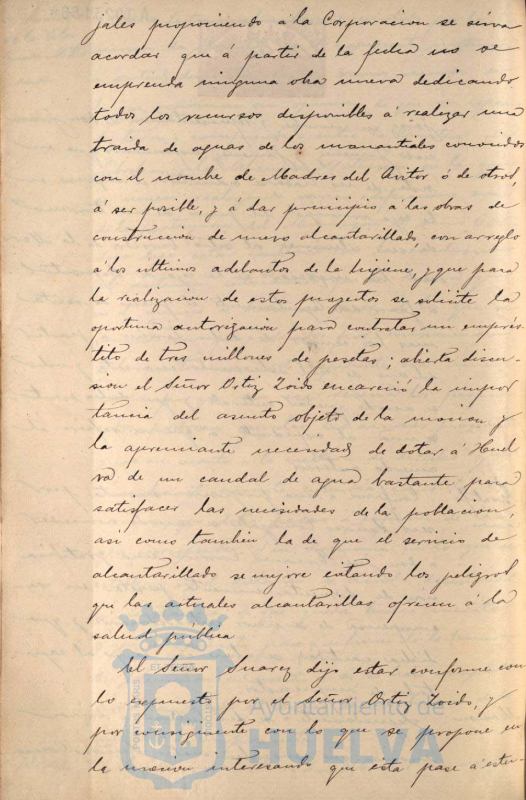 jales proponiendo á la Corporacion se sirva
acordar que á partir de la fecha no se
emprenda ninguna obra nueva dedicando
todos los recursos disponibles á realizar una
traida de aguas de los manantiales conocidos
con el nombre de Madres del Avitor ó de otros,
á ser posible, y á dar principio á las obras de
construccion de nuevo alcantarillado, con arreglo
á los últimos adelantos de la higiene, y que para
la realizacion de estos proyectos se solicite la
oportuna autorizacion para contratar un emprés-
tito de tres millones de pesetas; abierta discu-
sion el Señor Ortiz Zoido encareció la impor
tancia del asunto objeto de la mocion y
la apremiante necesidad de dotar á Huel
va de un caudal de agua bastante para
satisfacer las necesidades de la poblacion,
asi como tambien la de que el servicio de
alcantarillado se mejore evitando los peligros
que las actuales alcantarillas ofrecen á la
salud pública
El Señor Suarez dijo estar conforme con
lo expuesto por el Señor Ortiz Zoido, y
por consiguiente con lo que se propone en
la mocion interesando que esta pase á estu-
Ayuntamiento de
HUELVA